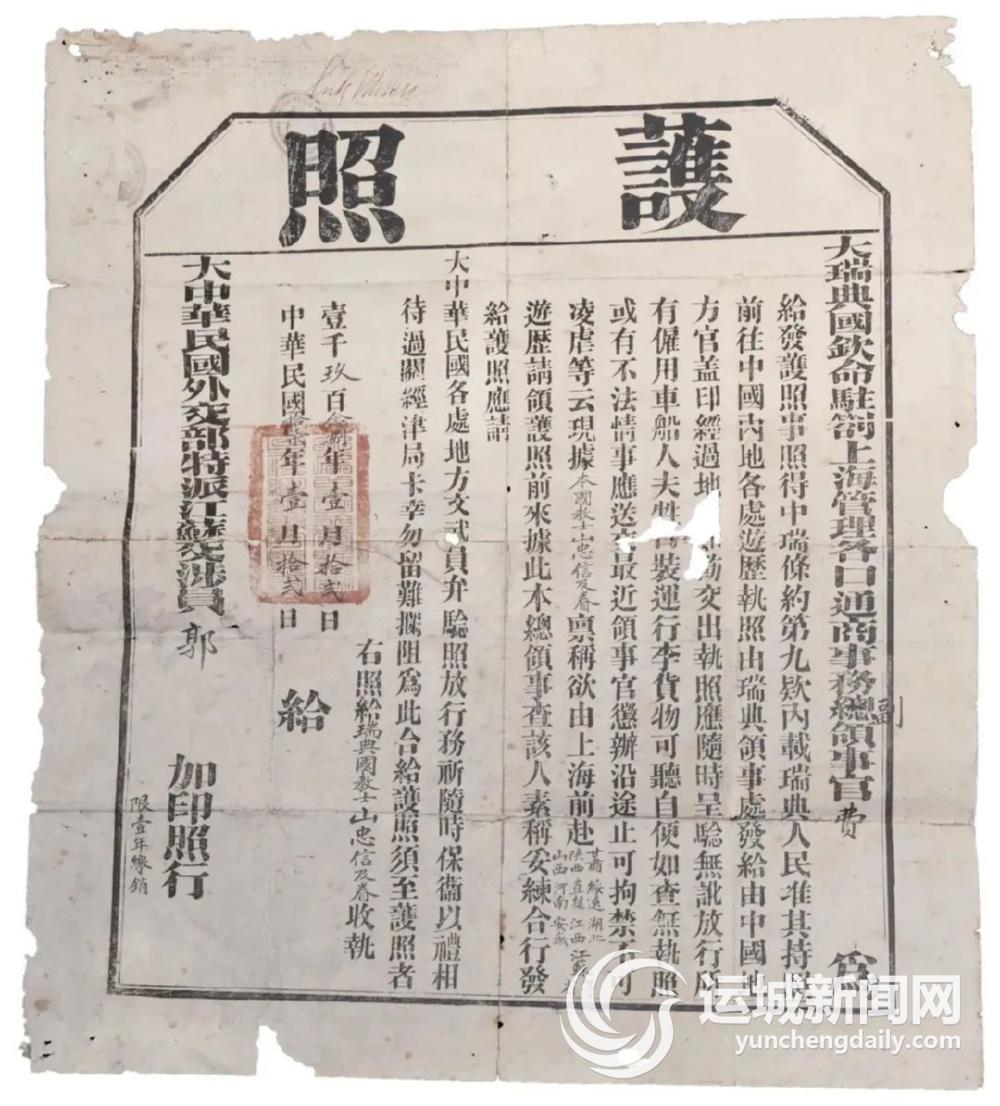 護照
大瑞典國欽命駐劄上海管理各口通商事務總領事官費 為
副
給發護照事照得中瑞條約第九欵內載瑞典人民准其持照
前往中國內地各處遊歷執照由瑞典領事處發給由中國地
方官盖印經過地 飭交出執照應隨時呈驗無訛放行所
有僱用車船人夫牲 裝運行李貨物可聽自便如查無執照
或有不法情事應送交最近領事官懲辦沿途止可拘禁不可
凌虐等云現據本國教士山忠信及眷稟稱欲由上海前赴
甘肅 綏遠 湖北
陝西 直隸 江西 江蘇
山西 河南 安徽
遊歷請領護照前來據此本總領事查該人素稱安練合行發
給護照應請
大中華民國各處地方文武員弁驗照放行務祈隨時保衛以禮相
待過關經津局卡幸勿留難攔阻為此合給護照須至護照者
右照給瑞典國教士山忠信及眷收執
壹千玖百 年壹月拾弍日
中華民國 年壹月拾弍日
給
大中華民國外交部特派江蘇交涉員郭 加印照行
限壹年繳銷
运城新闻网
yunchengdaily.com